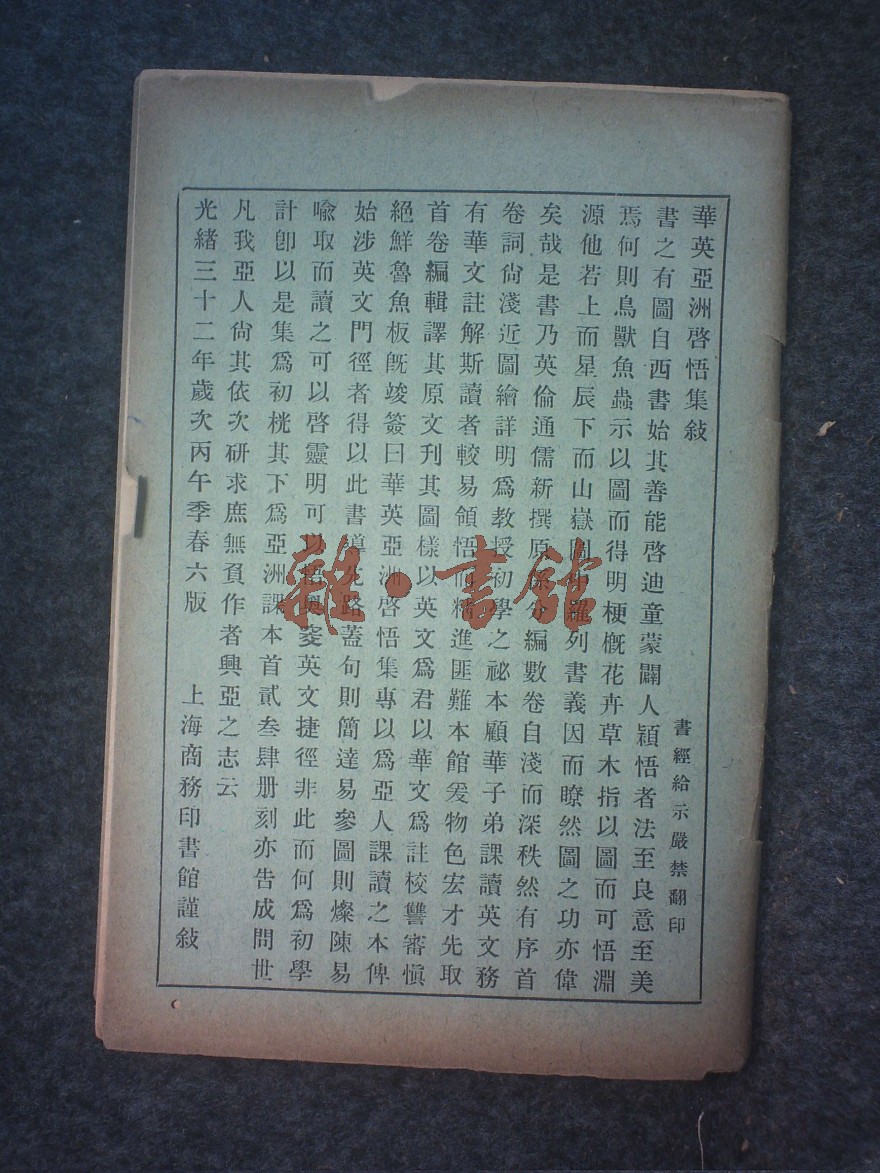 華英亞洲啓悟集敍
書經給示嚴禁翻印
書之有圖自西書始其善能啓迪童蒙闢人穎悟者法至良意至美
焉何則鳥獸魚蟲示以圖而得明梗槪花卉草木指以圖而可悟淵
源他若上而星辰下而山嶽圖中羅列書義因而瞭然圖之功亦偉
矣哉是書乃英倫通儒新撰原分編數卷自淺而深秩然有序首
卷詞尙淺近圖繪詳明爲敎授初學之祕本顧華子弟課讀英文務
有華文註解斯讀者較易領悟而精進匪難本館爰物色宏才先取
首卷編輯譯其原文刊其圖樣以英文爲君以華文爲註校讐審愼
絕鮮魯魚板旣竣簽曰華英亞洲啓悟集專以爲亞人課讀之本俾
始涉英文門徑者得以此書導先路蓋句則簡達易參圖則燦陳易
喩取而讀之可以啓靈明可以悟奧窔英文捷徑非此而何爲初學
計卽以是集爲初桄其下爲亞洲課本首貳叁肆册刻亦告成問世
凡我亞人尙其依次硏求庶無負作者興亞之志云
光緒三十二年歲次丙午季春六版 上海商務印書館謹敍
雜·書館